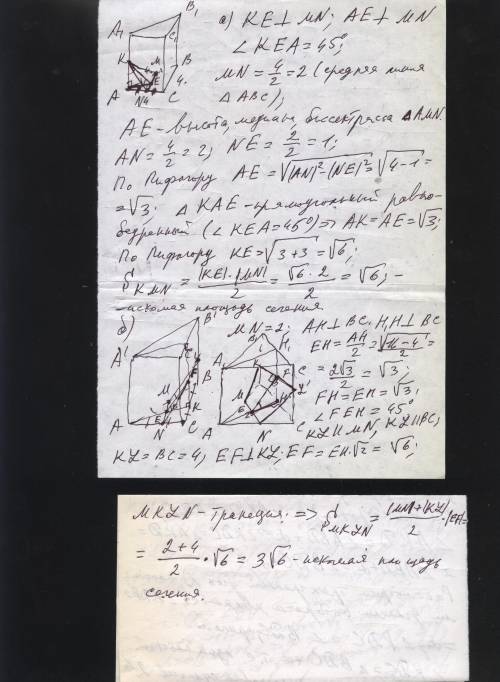 а) KE⊥MN; AE⊥MN
∠KEA=45°;
MN=4/2=2 (средняя линия
△ABC);
AE - высота, медиана, биссектриса △AMN.
AN=4/2=2; NE=2/2=1;
По Пифагору AE=√|AN|²-|NE|²=√4-1=
=√3. △KAE-прямоугольный равно-
бедренный (∠KEA=45°)⇒AK=AE=√3;
По Пифагору KE=√3+3=√6;
S KMN=|KE|·|MN|/2=√6·2/2=√6; -
- искомая площадь сечения
б)
MN=2; AH⊥BC. H₁H⊥BC
EH=AH/2=√16-4/2=
=2√3/2=√3;
FH=EH=√3;
∠FEH=45°
KL∥MN, KL∥BC,
KL=BC=4, EF⊥KL; EF=EH·√2=√6;
MKLN-трапеция. ⇒ S MKLN=|MN|+|KL|/2·|EF|=
=2+4/2·√6=3√6-искомая площадь
сечения.